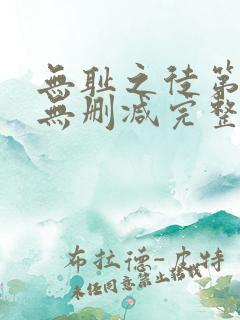 無耻之徒第
無删减完整
布拉德-皮特
未经同意禁止转载